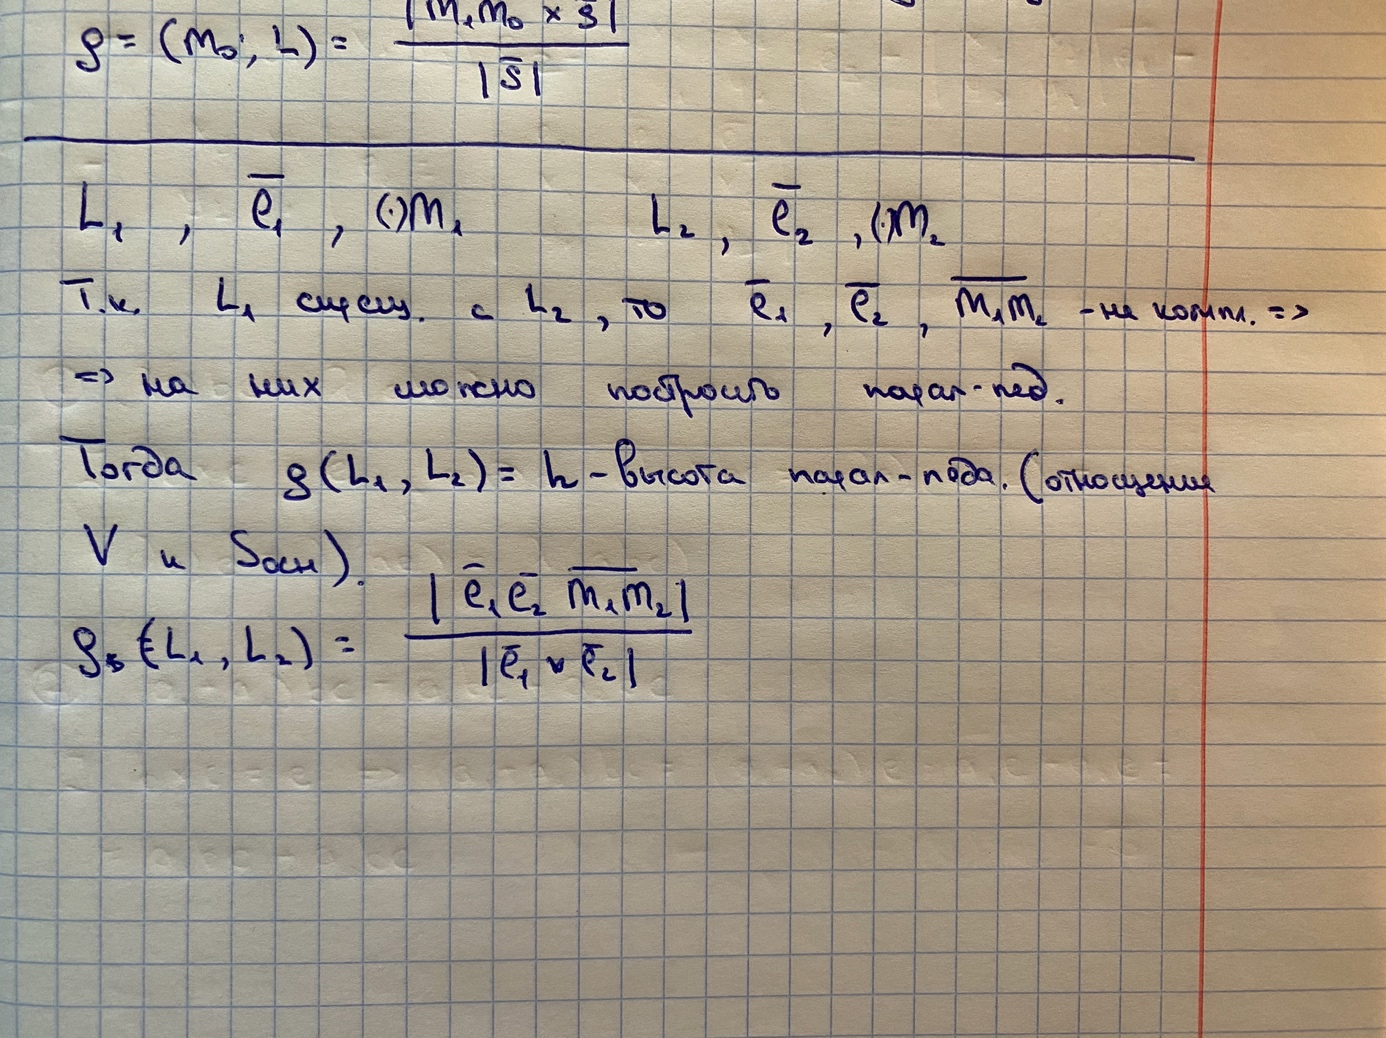 ρ = (M₀, L) = |M₁M₀ × s̅| / |s̅|
L₁ , e̅₁ , (·)M₁ L₂ , e̅₂ , (·)M₂
Т.к. L₁ скрещ. с L₂ , то e̅₁ , e̅₂ , M̅₁M̅₂ - не компл. =>
=> на них можно построить парал-пед.
Тогда ρ(L₁, L₂) = h - высота парал-педа. (отношение
V и Sосн).
ρ (L₁, L₂) = |e̅₁ e̅₂ M̅₁M̅₂| / |e̅₁ × e̅₂|